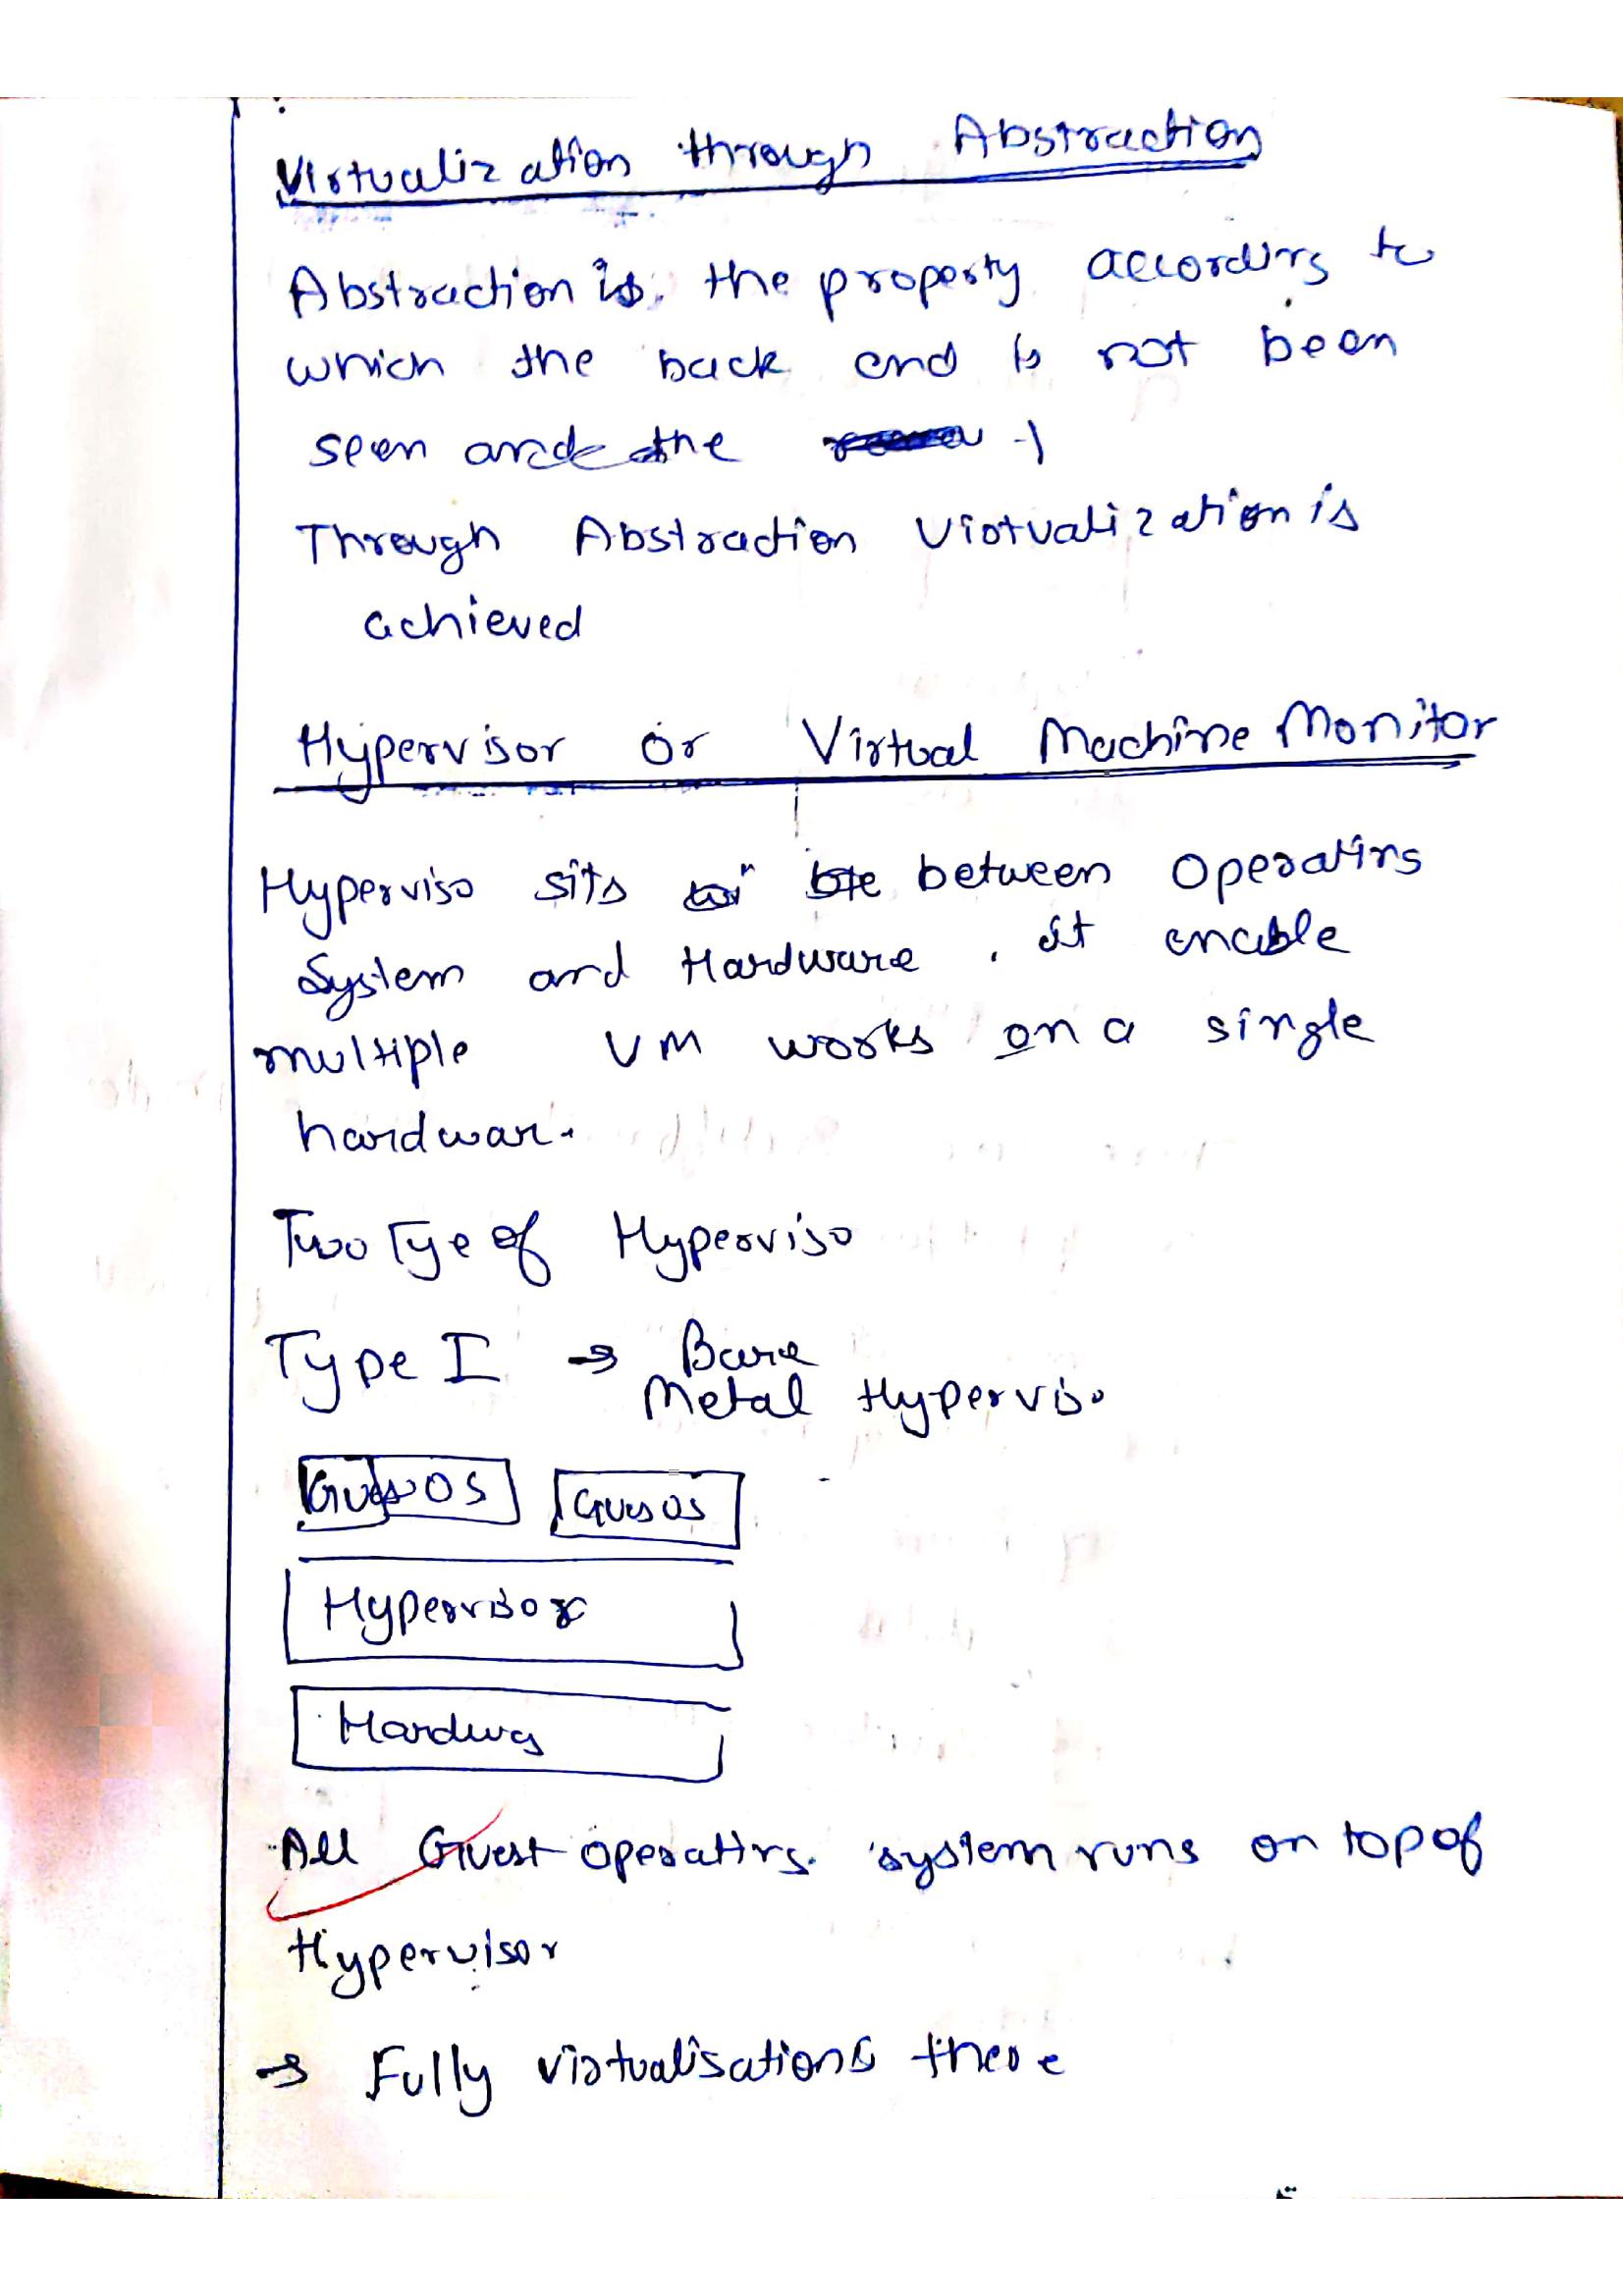 Virtualization through Abstraction
Abstraction is the property according to
which the back end is not been
seen and the
Through Abstraction Virtualization is
achieved
Hypervisor or Virtual Machine Monitor
Hyperviso sits between Operating
System and Hardware. it enable
multiple VM works on a single
hardwar.
Two Tye of Hyperviso
Type I → Bare
Metal Hyperviso
Gues OS Gues OS
Hypervisor
All Guest operating system runs on top of
Hypervisor
→ Fully virtualisations there